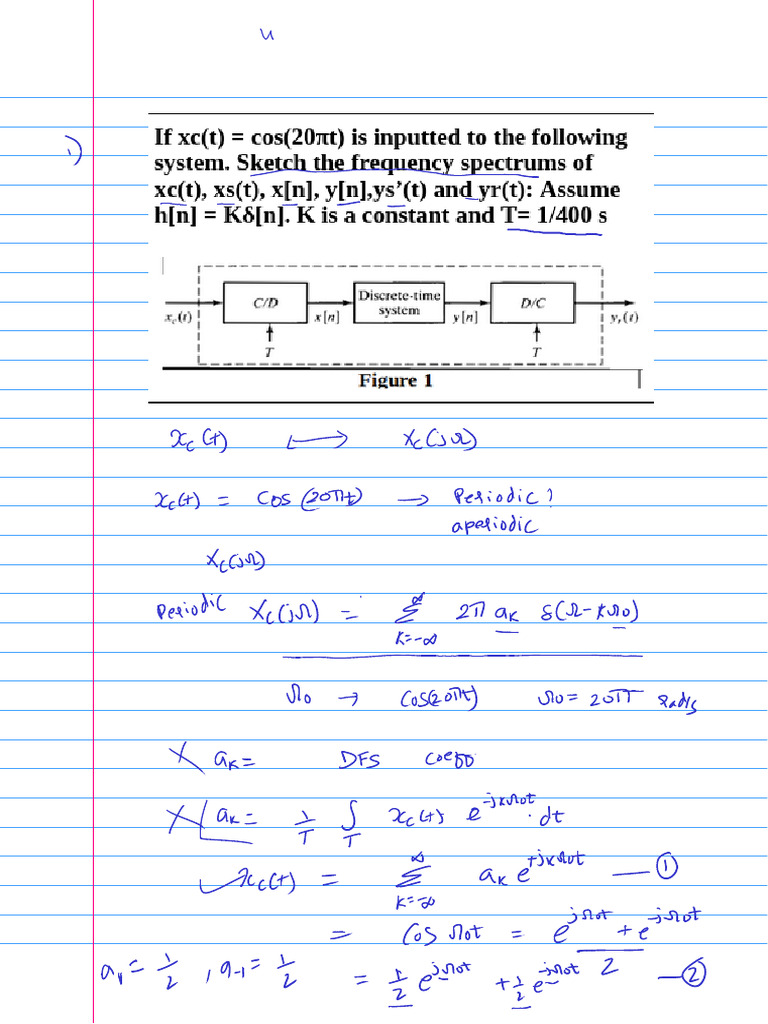 u
1)
If xc(t) = cos(20πt) is inputted to the following
system. Sketch the frequency spectrums of
xc(t), xs(t), x[n], y[n],ys’(t) and yr(t): Assume
h[n] = Kδ[n]. K is a constant and T= 1/400 s
C/D Discrete-time system D/C
x_c(t) x[n] y[n] y_r(t)
T T
Figure 1
x_c(t) ⟷ X_c(jΩ)
x_c(t) = cos(20πt) → Periodic?
aperiodic
X_c(jΩ)
Periodic X_c(jΩ) = Σ_{K=-∞}^{∞} 2π a_K δ(Ω-KΩ0)
Ω0 → cos(20πt) Ω0 = 20π rad/s
X a_K = DFS coeff
X a_K = 1/T ∫_T x_c(t) e^{-jKΩ0t} . dt
✓ x_c(t) = Σ_{K=-∞}^{∞} a_K e^{+jKΩ0t} — ①
= cos Ω0t = (e^{jΩ0t} + e^{-jΩ0t})/2
a_1 = 1/2 , a_-1 = 1/2 = 1/2 e^{jΩ0t} + 1/2 e^{-jΩ0t} — ②